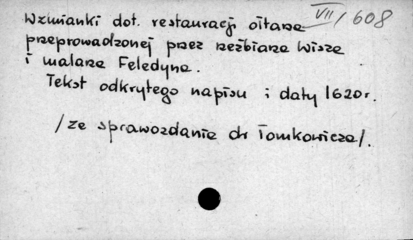 Wzmianki dot. restauracji ołtarza VII/608
przeprowadzonej przez rzeźbiarza Wisza
i malarza Feledyna.
Tekst odkrytego napisu i daty 1620 r.
/ze sprawozdania dr Tomkowicza/.